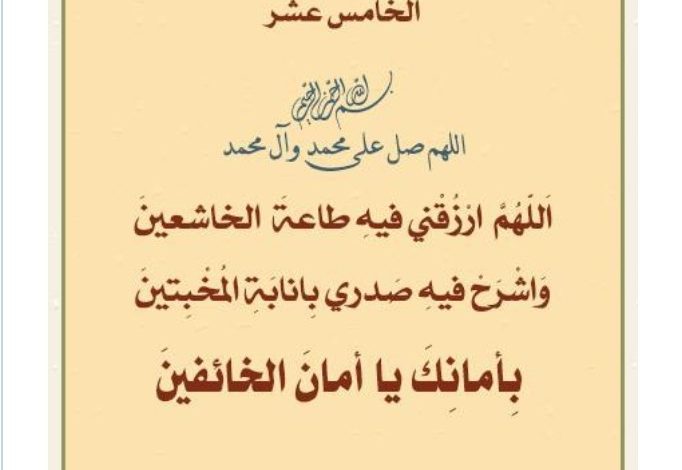 الخامس عشر
بسم الله الرحمن الرحيم
اللهم صل على محمد وآل محمد
اَللّهُمَّ ارْزُقْني فيهِ طاعةَ الخاشعينَ
وَاشْرَحْ فيهِ صَدري بِانابَةِ المُخْبِتينَ
بِأمانِكَ يا أمانَ الخائفينَ